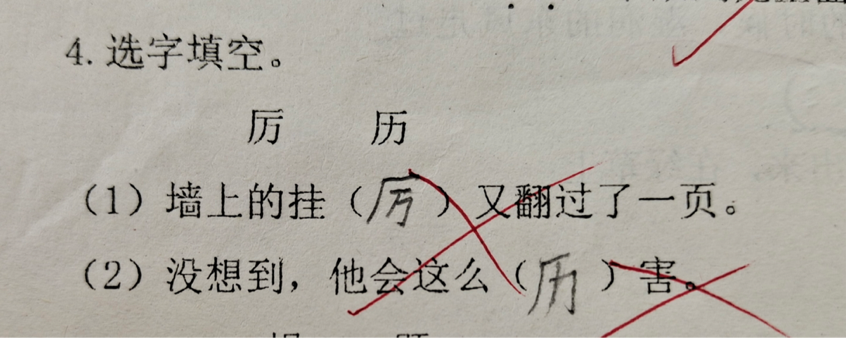 4. 选字填空。
厉 历
（1）墙上的挂（厉）又翻过了一页。
（2）没想到，他会这么（历）害。